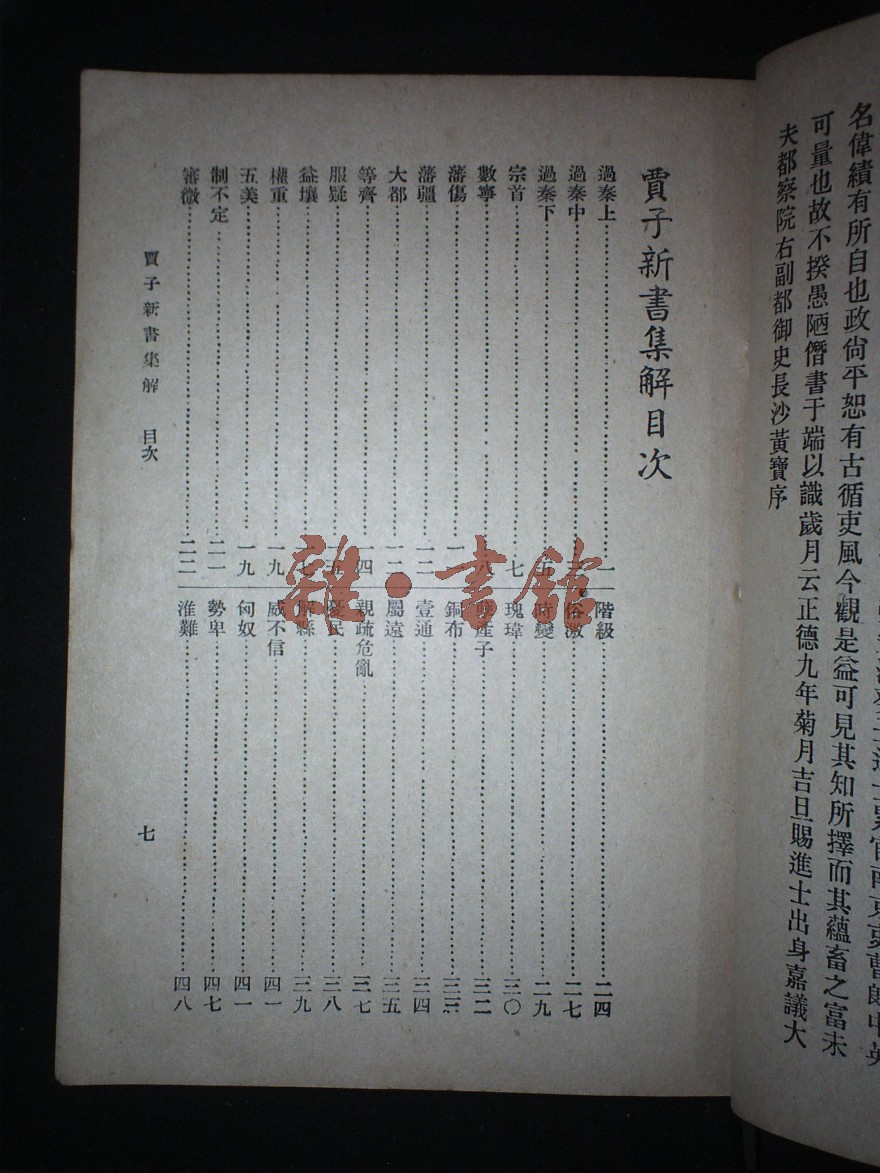 名偉績有所自也政尙平恕有古循吏風今觀是益可見其知所擇而其蘊畜之富未
可量也故不揆愚陋僭書于端以識歲月云正德九年菊月吉旦賜進士出身嘉議大
夫都察院右副都御史長沙黃寶序
賈子新書集解目次
過秦上 一
過秦中 三
過秦下 五
宗首 七
數寧 八
藩傷
藩疆 一二
大都 一二
等齊 一四
服疑 一五
益壤 一七
權重 一九
五美 一九
制不定 二一
審微 二二
階級 二四
俗激 二七
時變 二九
瑰瑋 三〇
孽產子 三二
銅布 三三
壹通 三四
屬遠 三五
親疏危亂 三七
憂民 三八
解縣 三九
威不信 四一
匈奴 四一
勢卑 四七
淮難 四八
賈子新書集解 目次
七
雜·書館